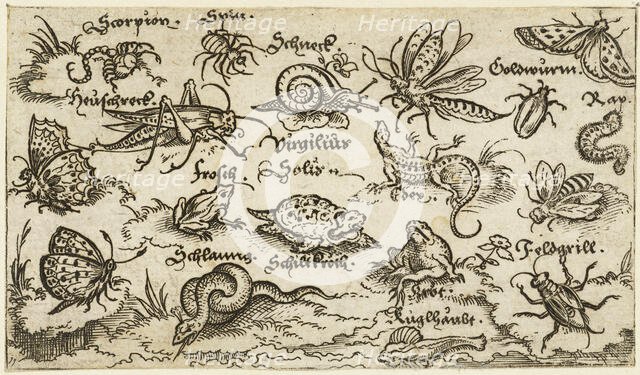 Scorpion.
Spin.
Schneck.
Goldwurm.
Heuschreck.
Rap.
Virgilius
Solis
frosch.
Schlanng
Schiltkrott.
Feldgrill.
Krot.
Heritage
Heritage
Heritage
Heritage
Heritage
Heritage